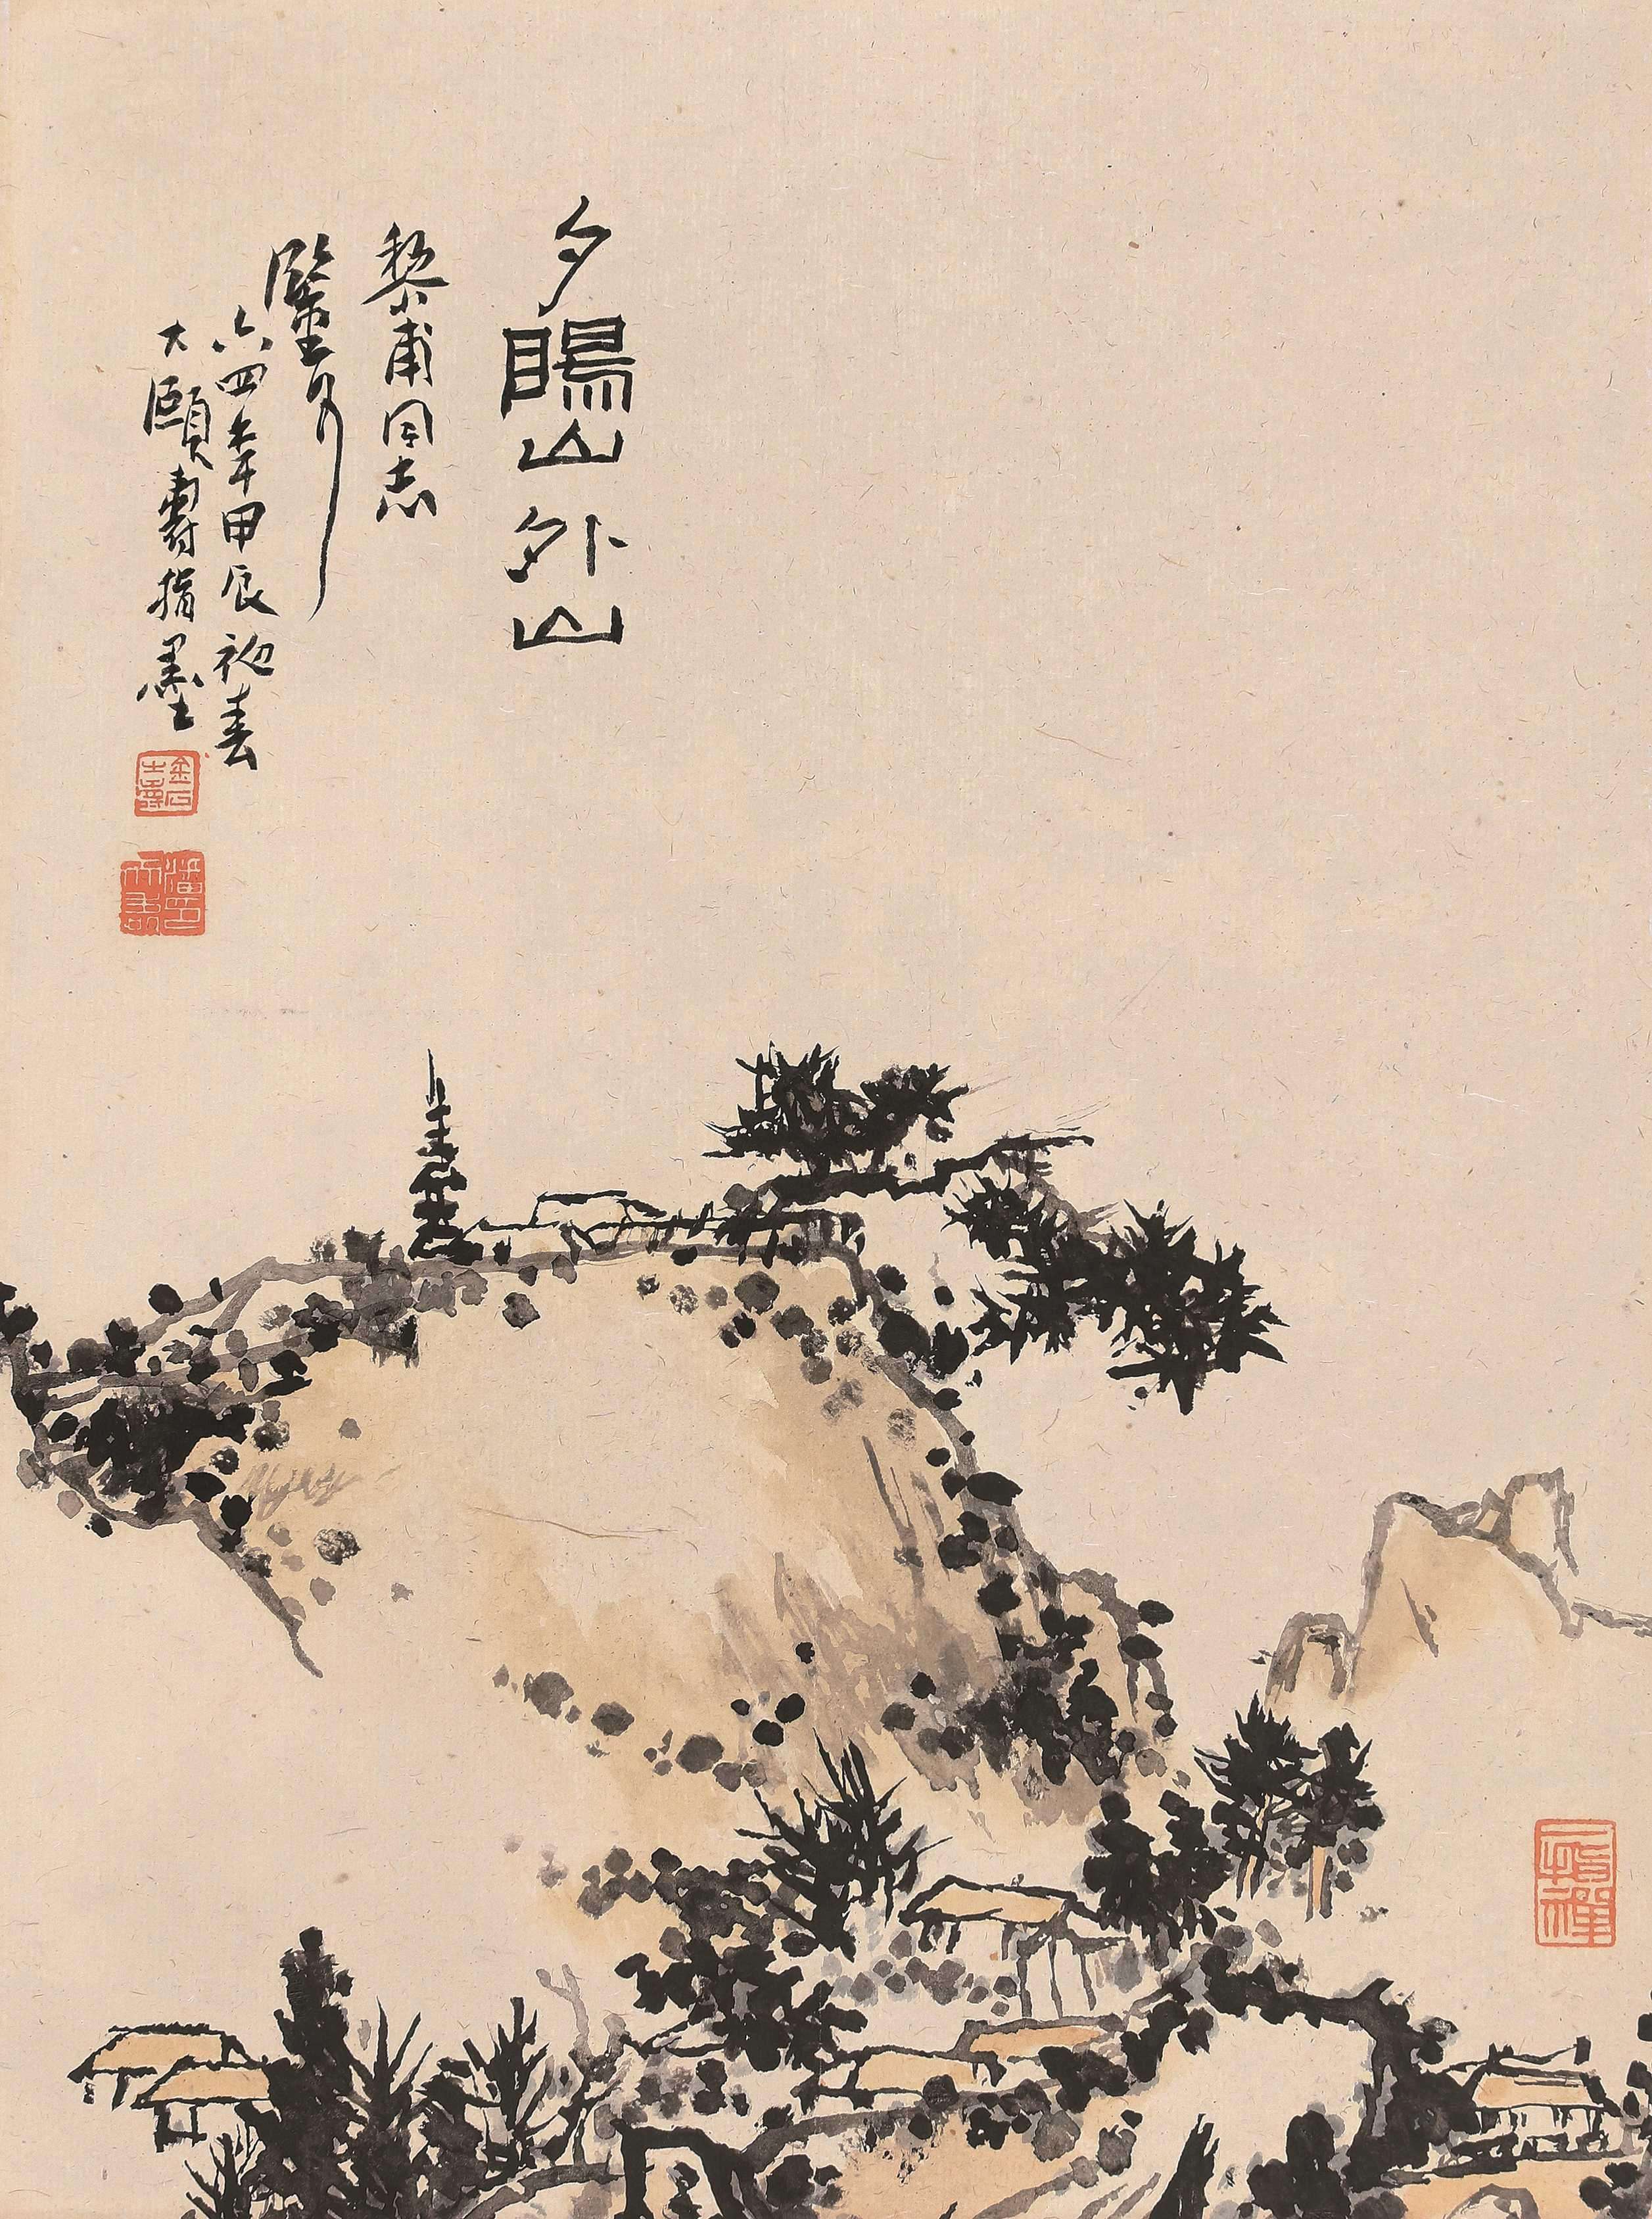 夕陽山外山
黎甫同志
鑒
六四年甲辰初春
大頤壽指墨
潘天壽印
一指禪